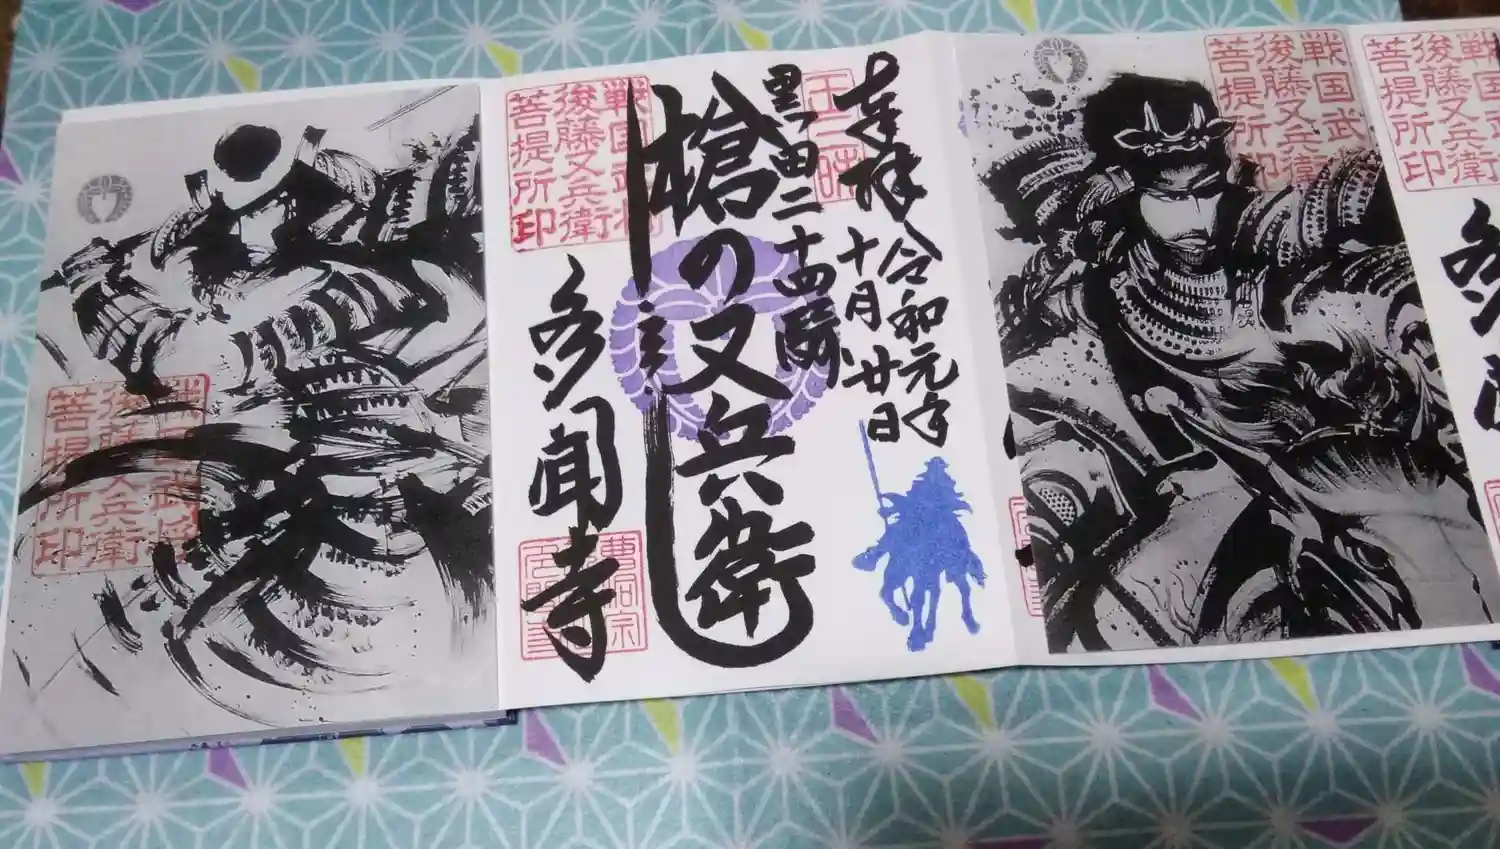 戦国武
後藤又兵衛
菩提所
戦国武
後藤又兵衛
菩提所印
奉拝
令和元年
十月廿日
黒田二十四騎
槍の又兵衛
戦国武将
後藤又兵衛
菩提所印
多聞寺
曹洞宗
戦国武将
後藤又兵衛
菩提所印